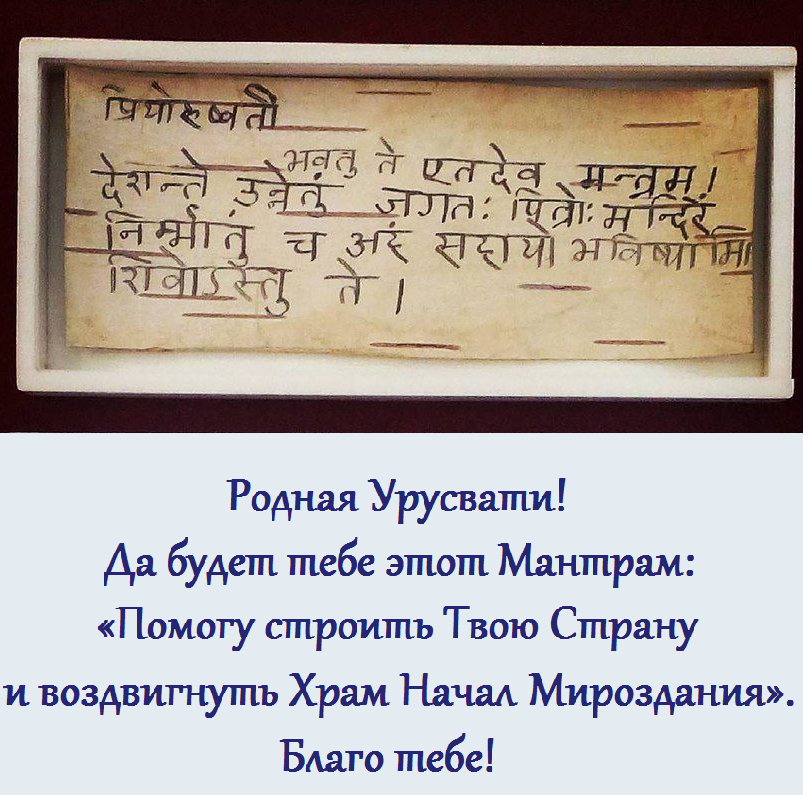 प्रियोरुष्वती
भवतु ते एतदेव मन्त्रम् ।
देशान्ते उन्नेतुं जगतः पित्रोः मन्दिरं
निर्म्मातुं च अहं सहायो भविष्यामि
शिवोऽस्तु ते ।
Родная Урусвати!
Да будет тебе этот Мантрам:
«Помогу строить Твою Страну
и воздвигнуть Храм Начал Мироздания».
Благо тебе!